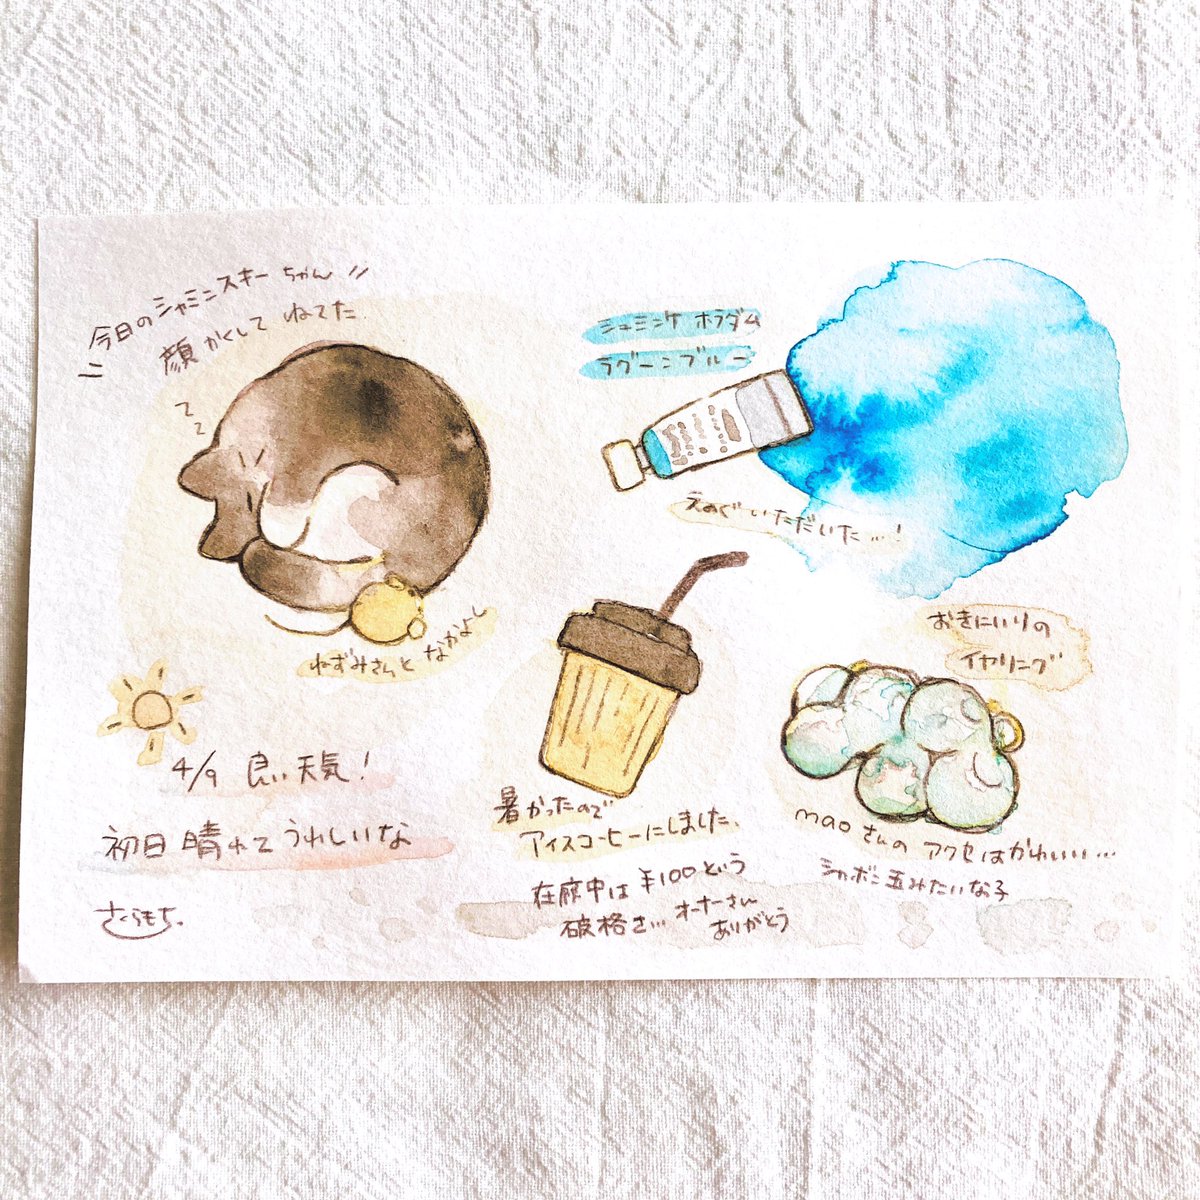 今日のシャミニスキーちゃん //
顔かくしてねてた.
z
z
ねずみさんとなかよし
4/9 良い天気！
初日晴れてうれしいな
さくらもち。
シュミンケ ホラダム
ラグーンブルー
えのぐいただいた…！
暑かったので
アイスコーヒーにしました.
在廊中は¥100という
破格さ… オーナーさん
ありがとう
おきにいりの
イヤリング
maoさんのアクセはかわいい…
シャボン玉みたいな子